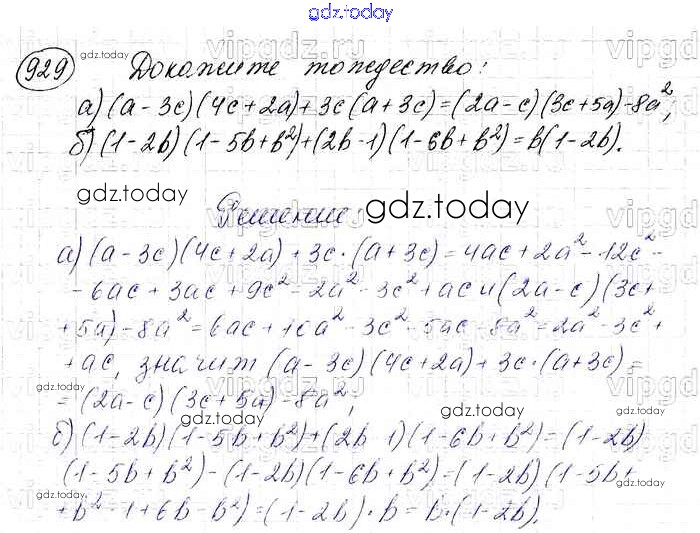 gdz.today
929 Докажите тождество:
а) (a-3c)(4c+2a)+3c(a+3c)=(2a-c)(3c+5a)-8a²;
б) (1-2b)(1-5b+b²)+(2b-1)(1-6b+b²)=b(1-2b).
gdz.today
Решение: gdz.today
а) (a-3c)(4c+2a)+3c·(a+3c)=4ac+2a²-12c²-
-6ac+3ac+9c²=2a²-3c²+ac и (2a-c)(3c+
+5a)-8a²=6ac+10a²-3c²-5ac-8a²=2a²-3c²+
+ac, значит (a-3c)(4c+2a)+3c·(a+3c)=
=(2a-c)(3c+5a)-8a²;
б) (1-2b)(1-5b+b²)+(2b-1)(1-6b+b²)=(1-2b)
(1-5b+b²)-(1-2b)(1-6b+b²)=(1-2b)(1-5b+
+b²-1+6b-b²)=(1-2b)·b=b·(1-2b).